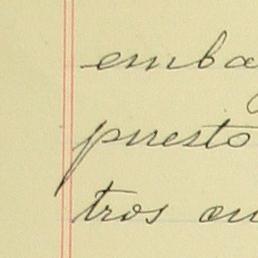 emba
puesto
tros au